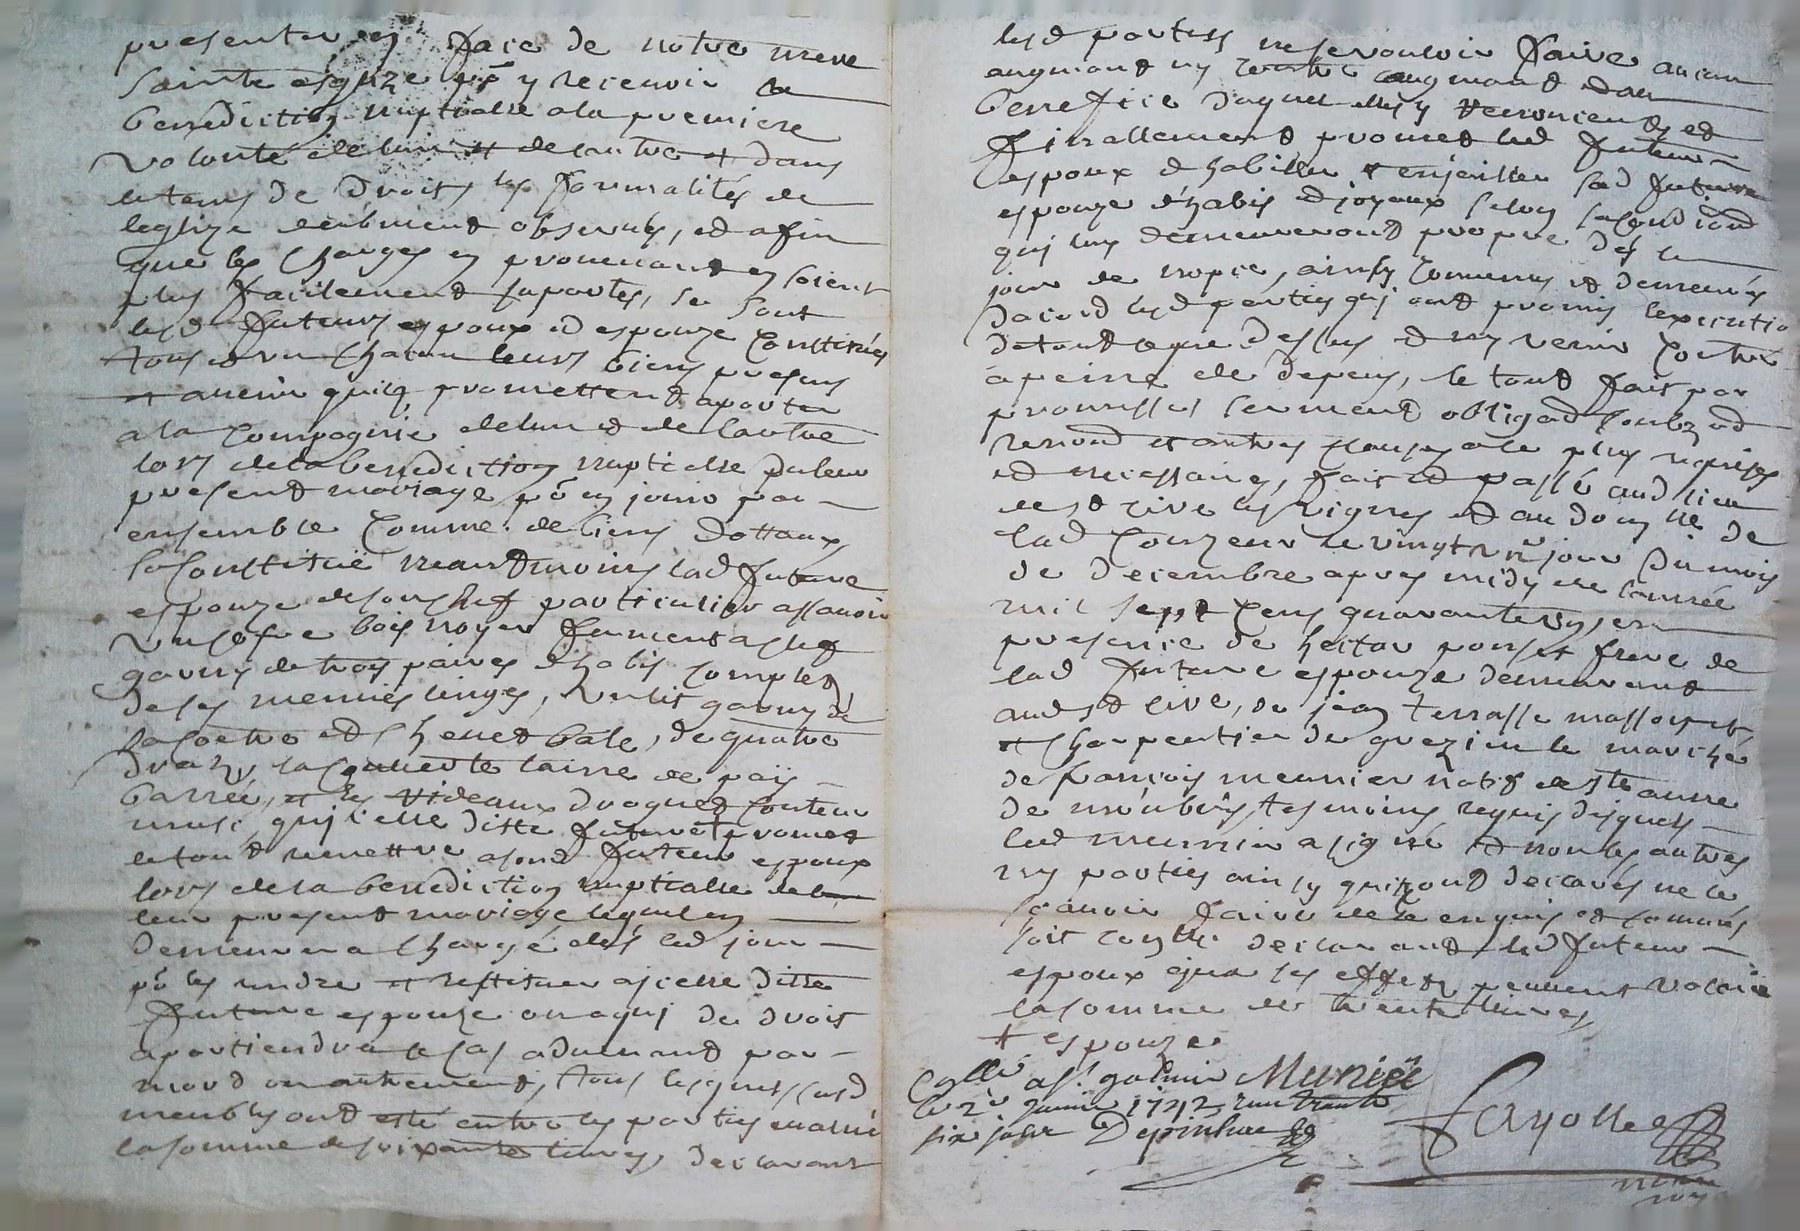 presenter en face de notre mere
sainte esglize pr y recevoir la
benediction nuptialle a la premiere
volonté de lun et de lautre et dans
le tems de droit, les formalités de
leglize deubment observés, et afin
que les charges en provenant en soient
plus facilement suportés, se sont
lesd futeurs espoux et espouze constitués
tous et un chacun leurs biens presens
et avenir quilz promettent aporter
a la compagnie de lun et de lautre
lors de la benediction nuptialle du leur
present mariage pr en jouir par
ensemble comme de biens dottaux
sa constitué neandmoins lad future
espouze de son chef particulier assavoir
un cofre bois noyer fermant a clef
garny de trois paires dhabis complet
de ses menuës linges, un lit garny de
sa coetre et chevet bale, de quatre
draps, la couverte laine de païs
barrée, et les rideaux droguet couleur
musc, qui icelle ditte future promet
le tout remettre a sond futeur espoux
lors de la benediction nuptialle de
leur present mariage lequel en
demeurera chargé dés led jour
pr les rendre et restituer a icelle ditte
future espouze ou a qui de droit
apartiendra le cas advenant par
mort ou autrement, tous lesquels susd
meubles ont esté entre les parties evalué
la somme de soixante livres, declarant
lesd parties ne se vouloir faire aucun
augment ny contre augment dou
benefice duquel elles y renoncent, et
finallement promet led futeur
espoux dhabiller et enjoailler sad future
espouze dhabis et joyaux selon sa condition
qui luy demeureront propre dés le
jour de nopce, ainsy convenus et demeurés
dacord lesd parties qui ont promis lexecution
de tout ce que dessus et ny venir contre
a peine de depens, le tout fait par
promesses serment obligaon soubz et
renond et autres clauses a ce plus requises
et necessaires, fait et passé aud lieu
de st rive les vignes et au domlle de
lad couzeur le vingt un jour du mois
de decembre apres midy de lannée
mil sept cens quarante un, en
presence de hector ponset frere de
lad future espouze demeurant
aud st rive, de jean terrasse masson et
et charpentier de grezieu le marché
de françois meunier natif de ste anne
de montbris, tesmoins requis desquels
led meunier a signé et non les autres
ny parties ainsy quilz ont declarés ne le
sçavoir faire de ce enquis et sommés
soit conllé declarant led futeur
espoux que ses effetz peuvent valoir
la somme de trente livres
+ espouze
Collé a st galmier Muniéé
le 2e janvier 1742 reçu trente
six sols Depinhac
Fayolle